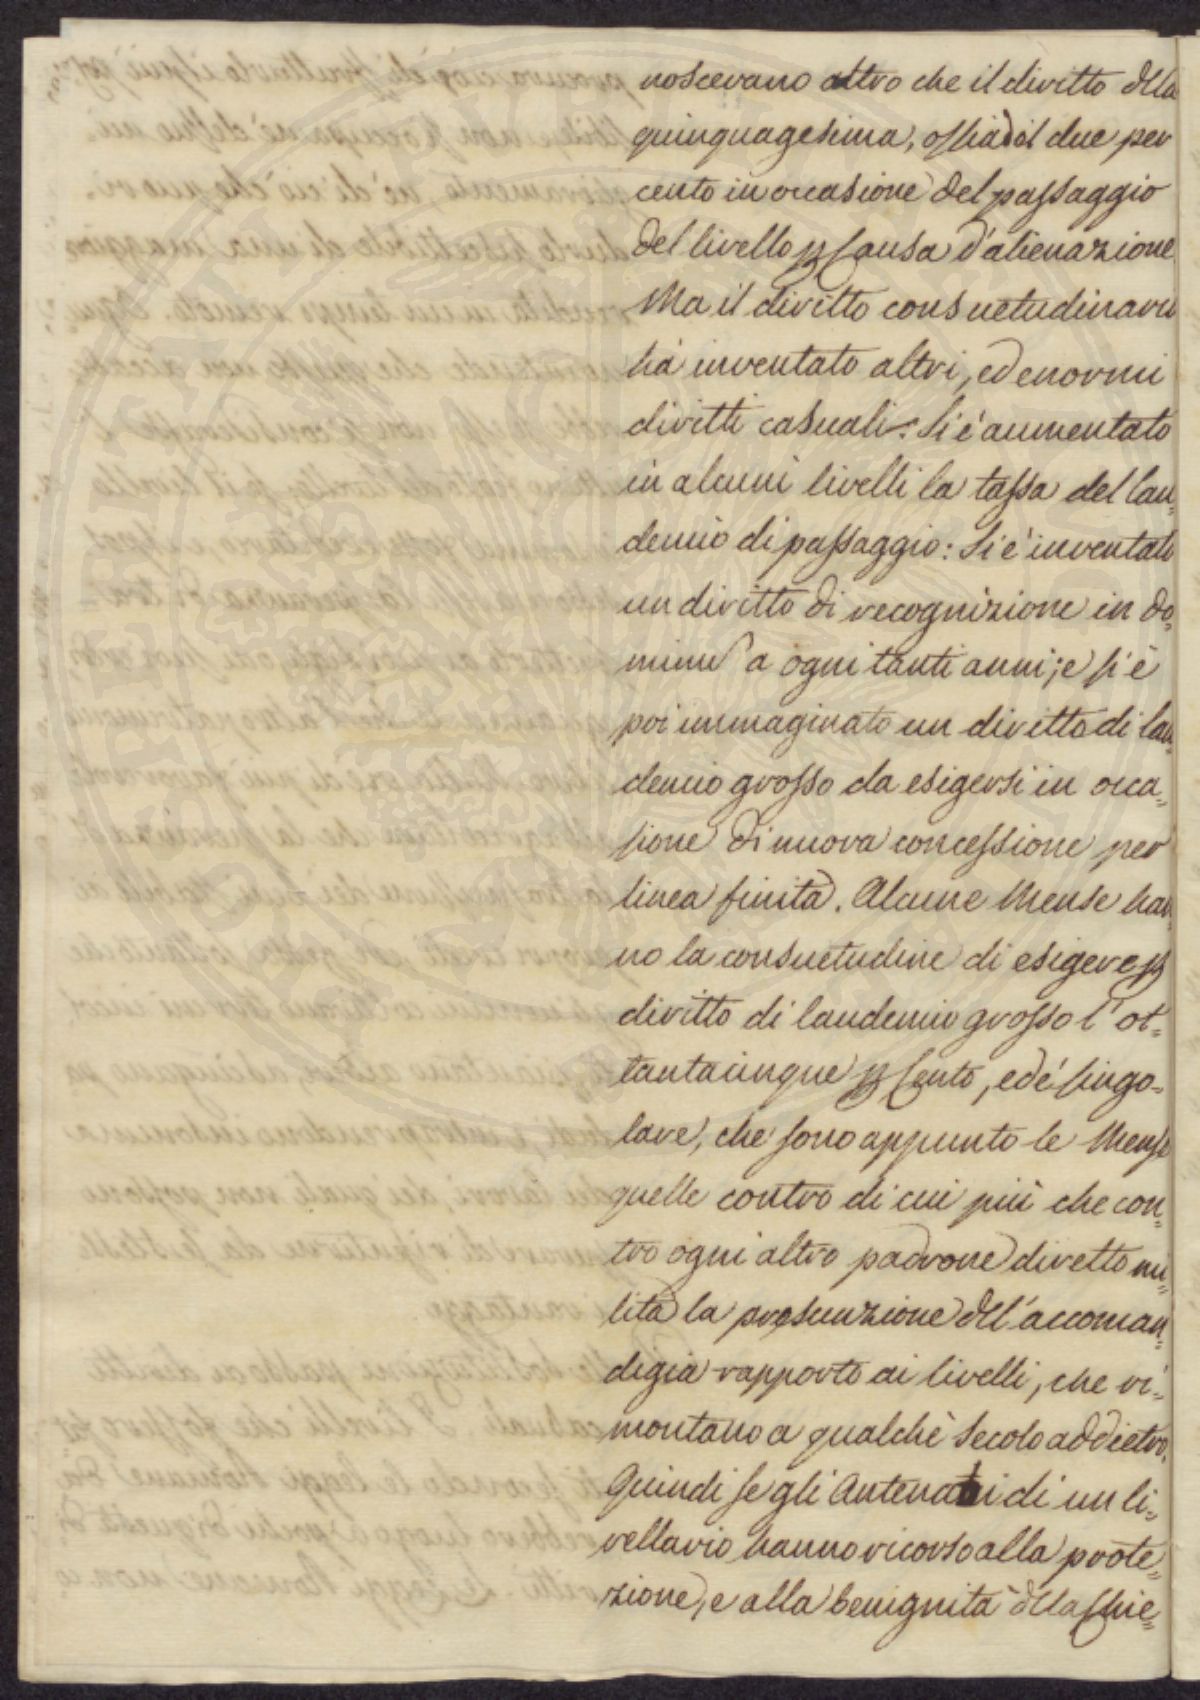 noscevano altro che il diritto della
quinquagesima, ossia il due per
cento in occasione del passaggio
del livello p causa d'alienazione
Ma il diritto consuetudinario
ha inventato altri, ed enormi
diritti casuali: Si è aumentato
in alcuni livelli la tassa del lau=
demio di passaggio: Si è inventato
un diritto di recognizione in do=
minū a ogni tanti anni; e si è
poi immaginato un diritto di lau=
demio grosso da esigersi in occa=
sione di nuova concessione per
linea finita. Alcune Mense han=
no la consuetudine di esigere p
diritto di laudemio grosso l'ot=
tantacinque p Cento, ed è singo=
lare, che sono appunto le Mense
quelle contro di cui più che con=
tro ogni altro padrone diretto mi=
lita la presunzione dell'accoman=
digia rapporto ai livelli, che ri=
montano a qualche secolo addietro.
Quindi se gli Antenati di un li=
vellario hanno ricorso alla prote=
zione, e alla benignità della Chie=